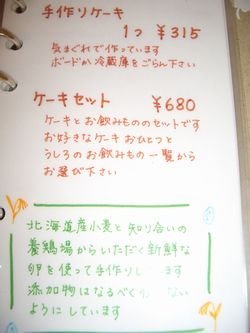 手作りケーキ
1つ ¥315
気まぐれで作っています
ボードか冷蔵庫をごらん下さい
ケーキセット ¥680
ケーキとお飲みもののセットです
お好きなケーキおひとつと
うしろのお飲みもの一覧から
お選び下さい
北海道産小麦と知り合いの
養鶏場からいただく新鮮な
卵を使って手作りし ます
添加物はなるべく ない
ようにしています